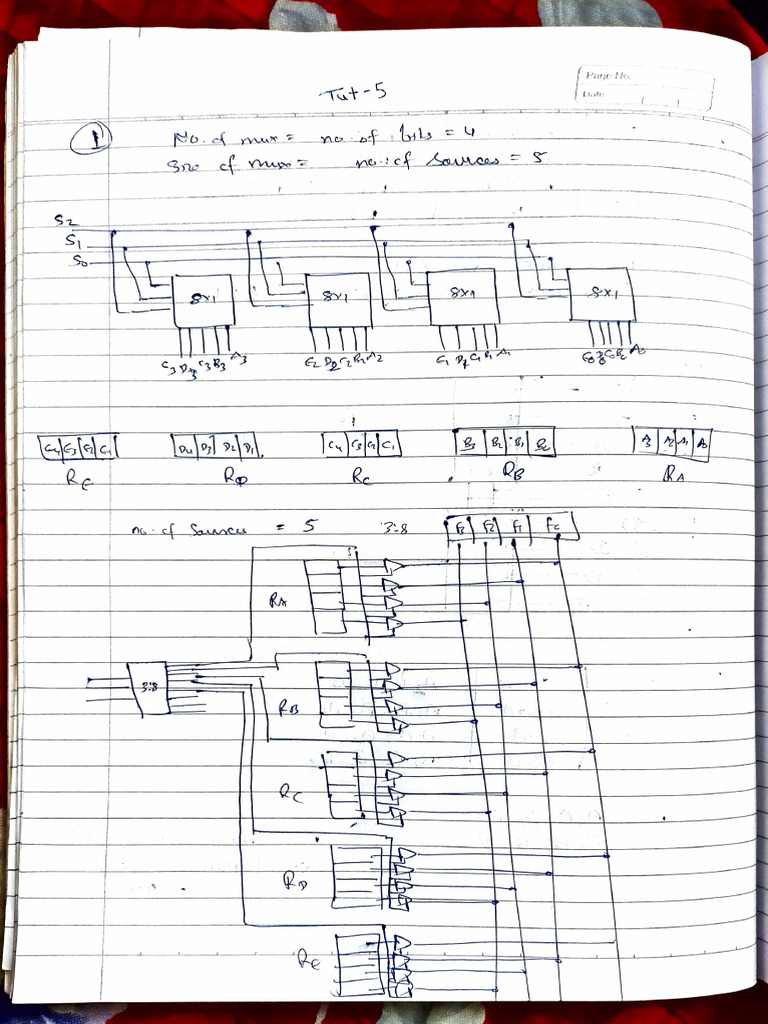 Page No.
Date
Tut-5
1
No. of mux = no of bits = 4
Size of mux = no. of sources = 5
S2
S1
S0
8x1 8x1 8x1 8x1
E3 D3 C3 B3 A3 E2 D2 C2 B2 A2 E1 D1 C1 B1 A1 E0 D0 C0 B0 A0
C4 C3 C2 C1 D4 D3 D2 D1 C4 C3 C2 C1 B3 B2 B1 B0 A3 A2 A1 A0
RE RD RC RB RA
no. of sources = 5 3:8 F3 F2 F1 F0
RA
3:8
RB
RC
RD
RE